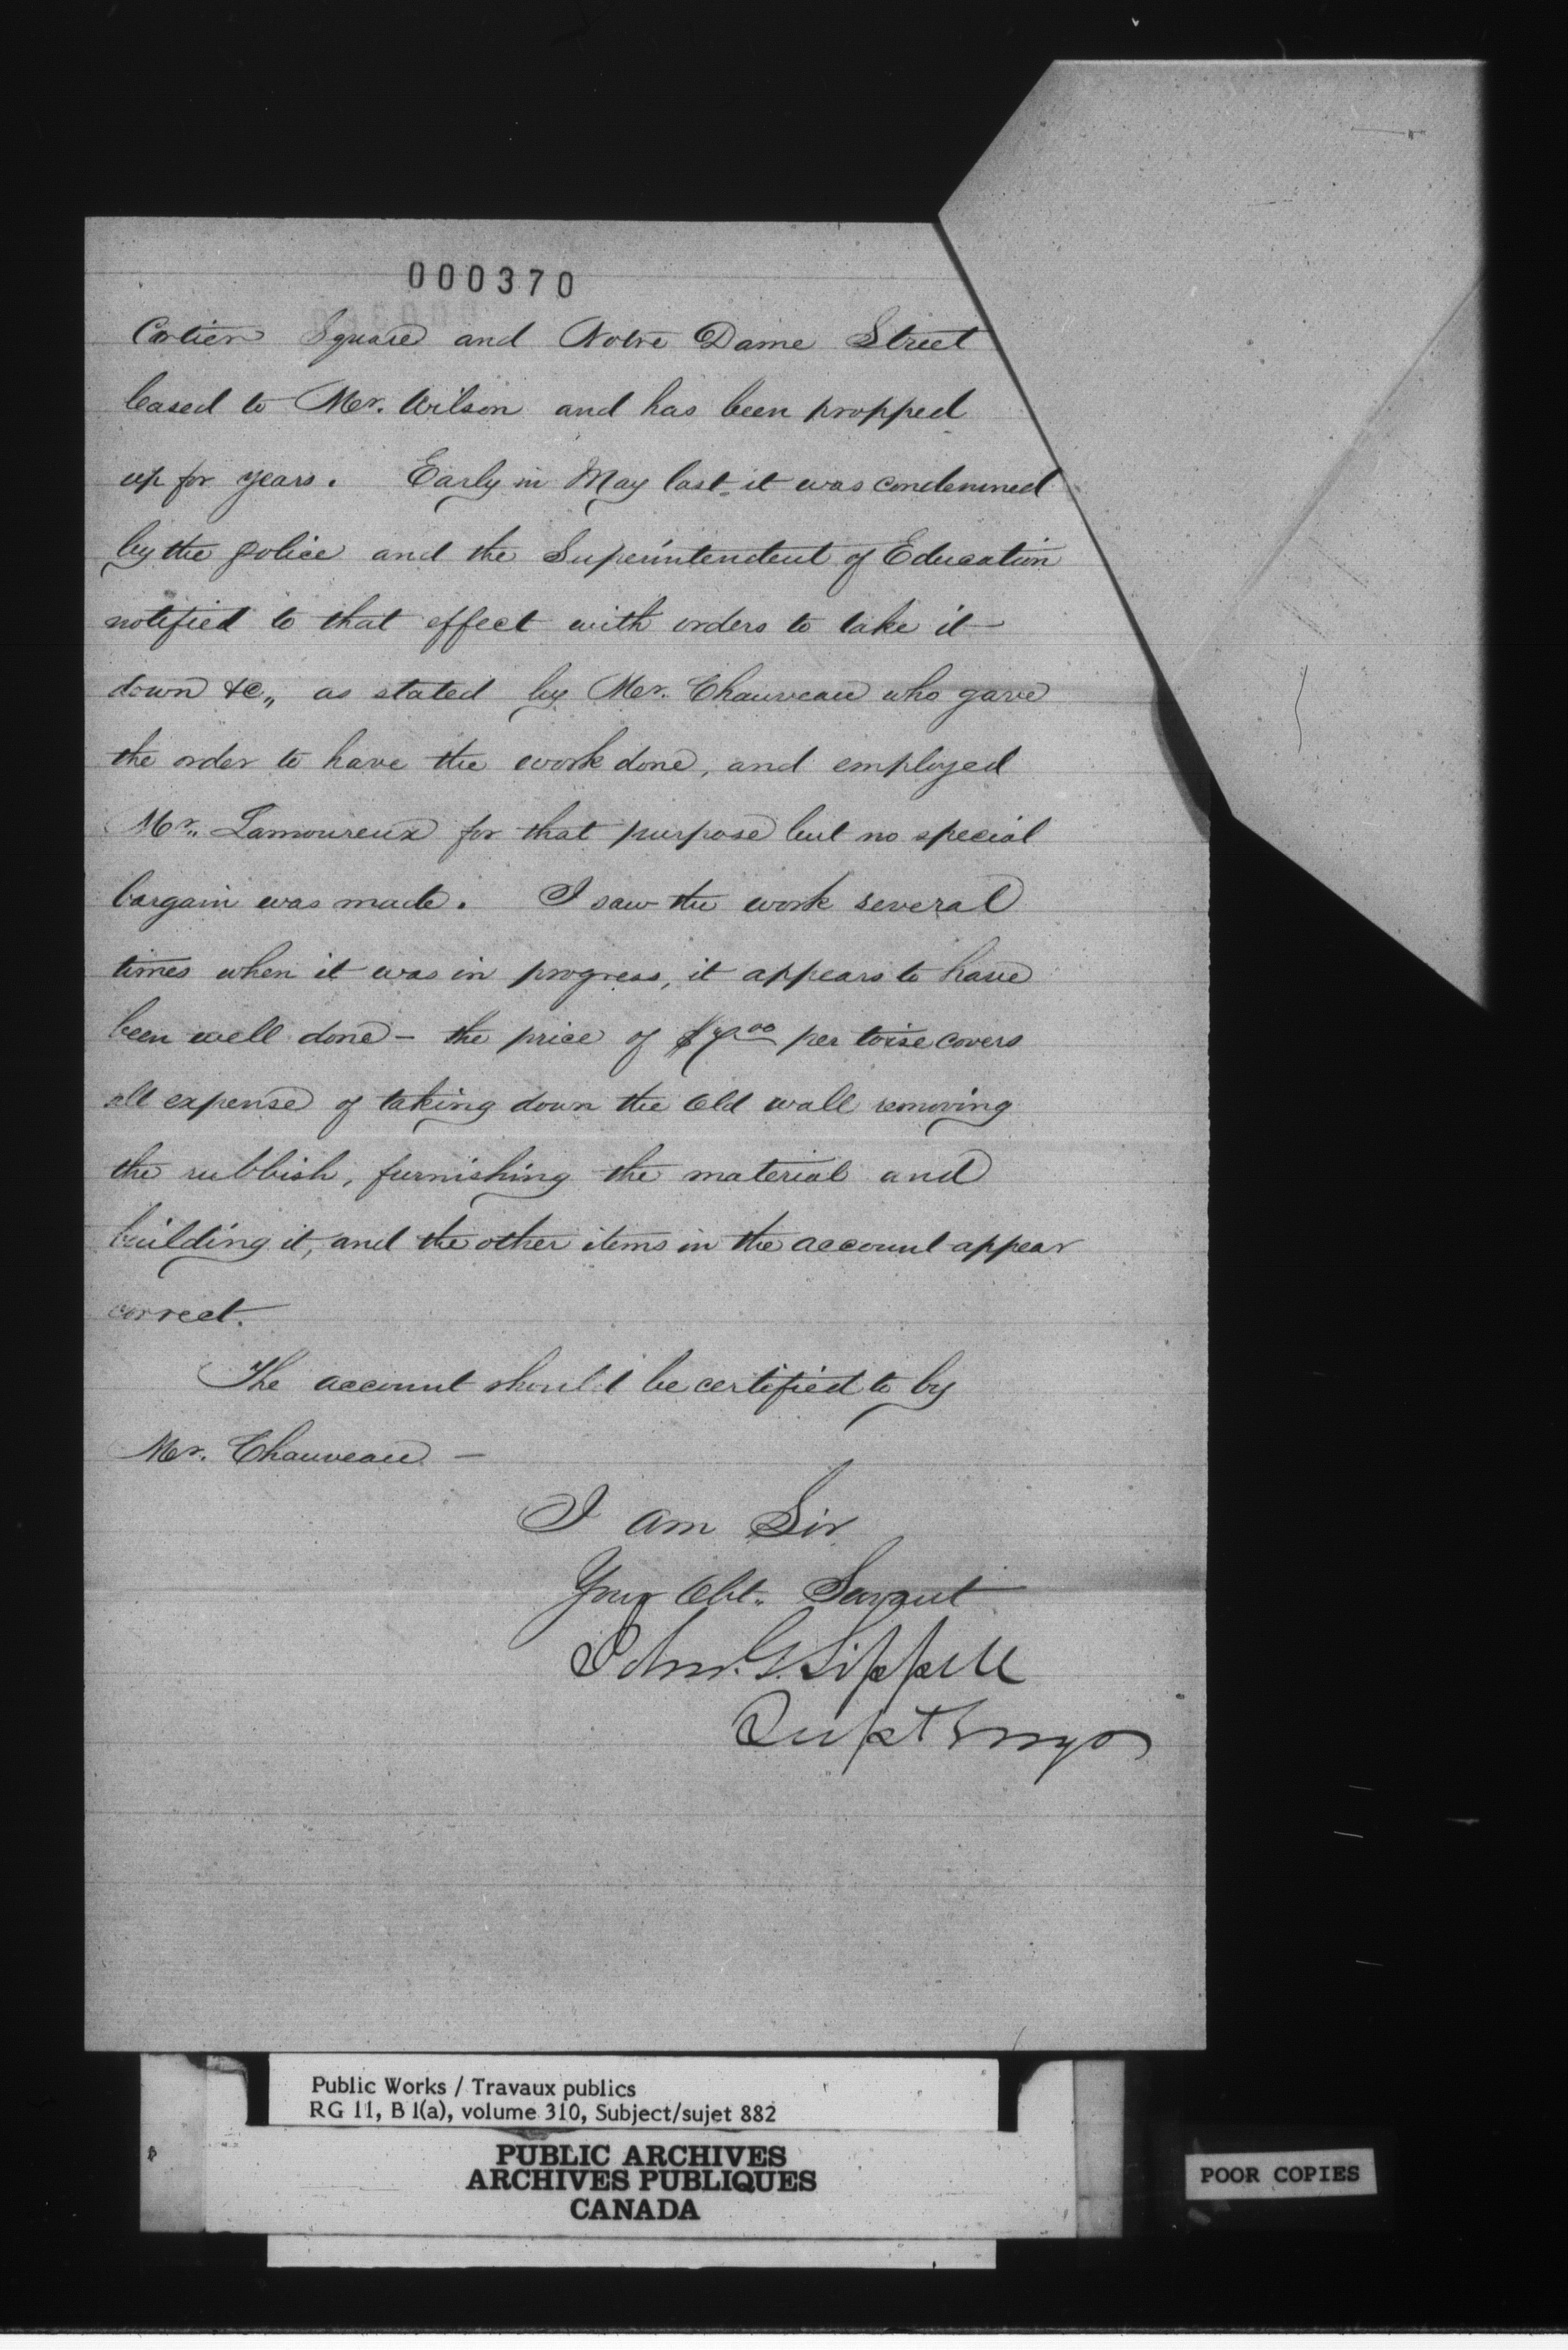 000370
Cartier Square and Notre Dame Street
leased to Mr. Wilson and has been propped
up for years. Early in May last it was condemned
by the police and the Superintendent of Education
notified to that effect with orders to take it
down &c,, as stated by Mr. Chauveau who gave
the order to have the work done, and employed
Mr,, Lamoureux for that purpose but no special
bargain was made. I saw the work several
times when it was in progress, it appears to have
been well done - the price of per toise covers
all expense of taking down the Old wall removing
the rubbish, furnishing the material and
building it, and the other items in the account appear
correct.
The account should be certified to by
Mr. Chauveau -
I am Sir
Your Obt. Servant
John. G. Sippell
Supt Engr
Public Works / Travaux publics
RG 11, B 1(a), volume 310, Subject/sujet 882
PUBLIC ARCHIVES
ARCHIVES PUBLIQUES
CANADA
POOR COPIES